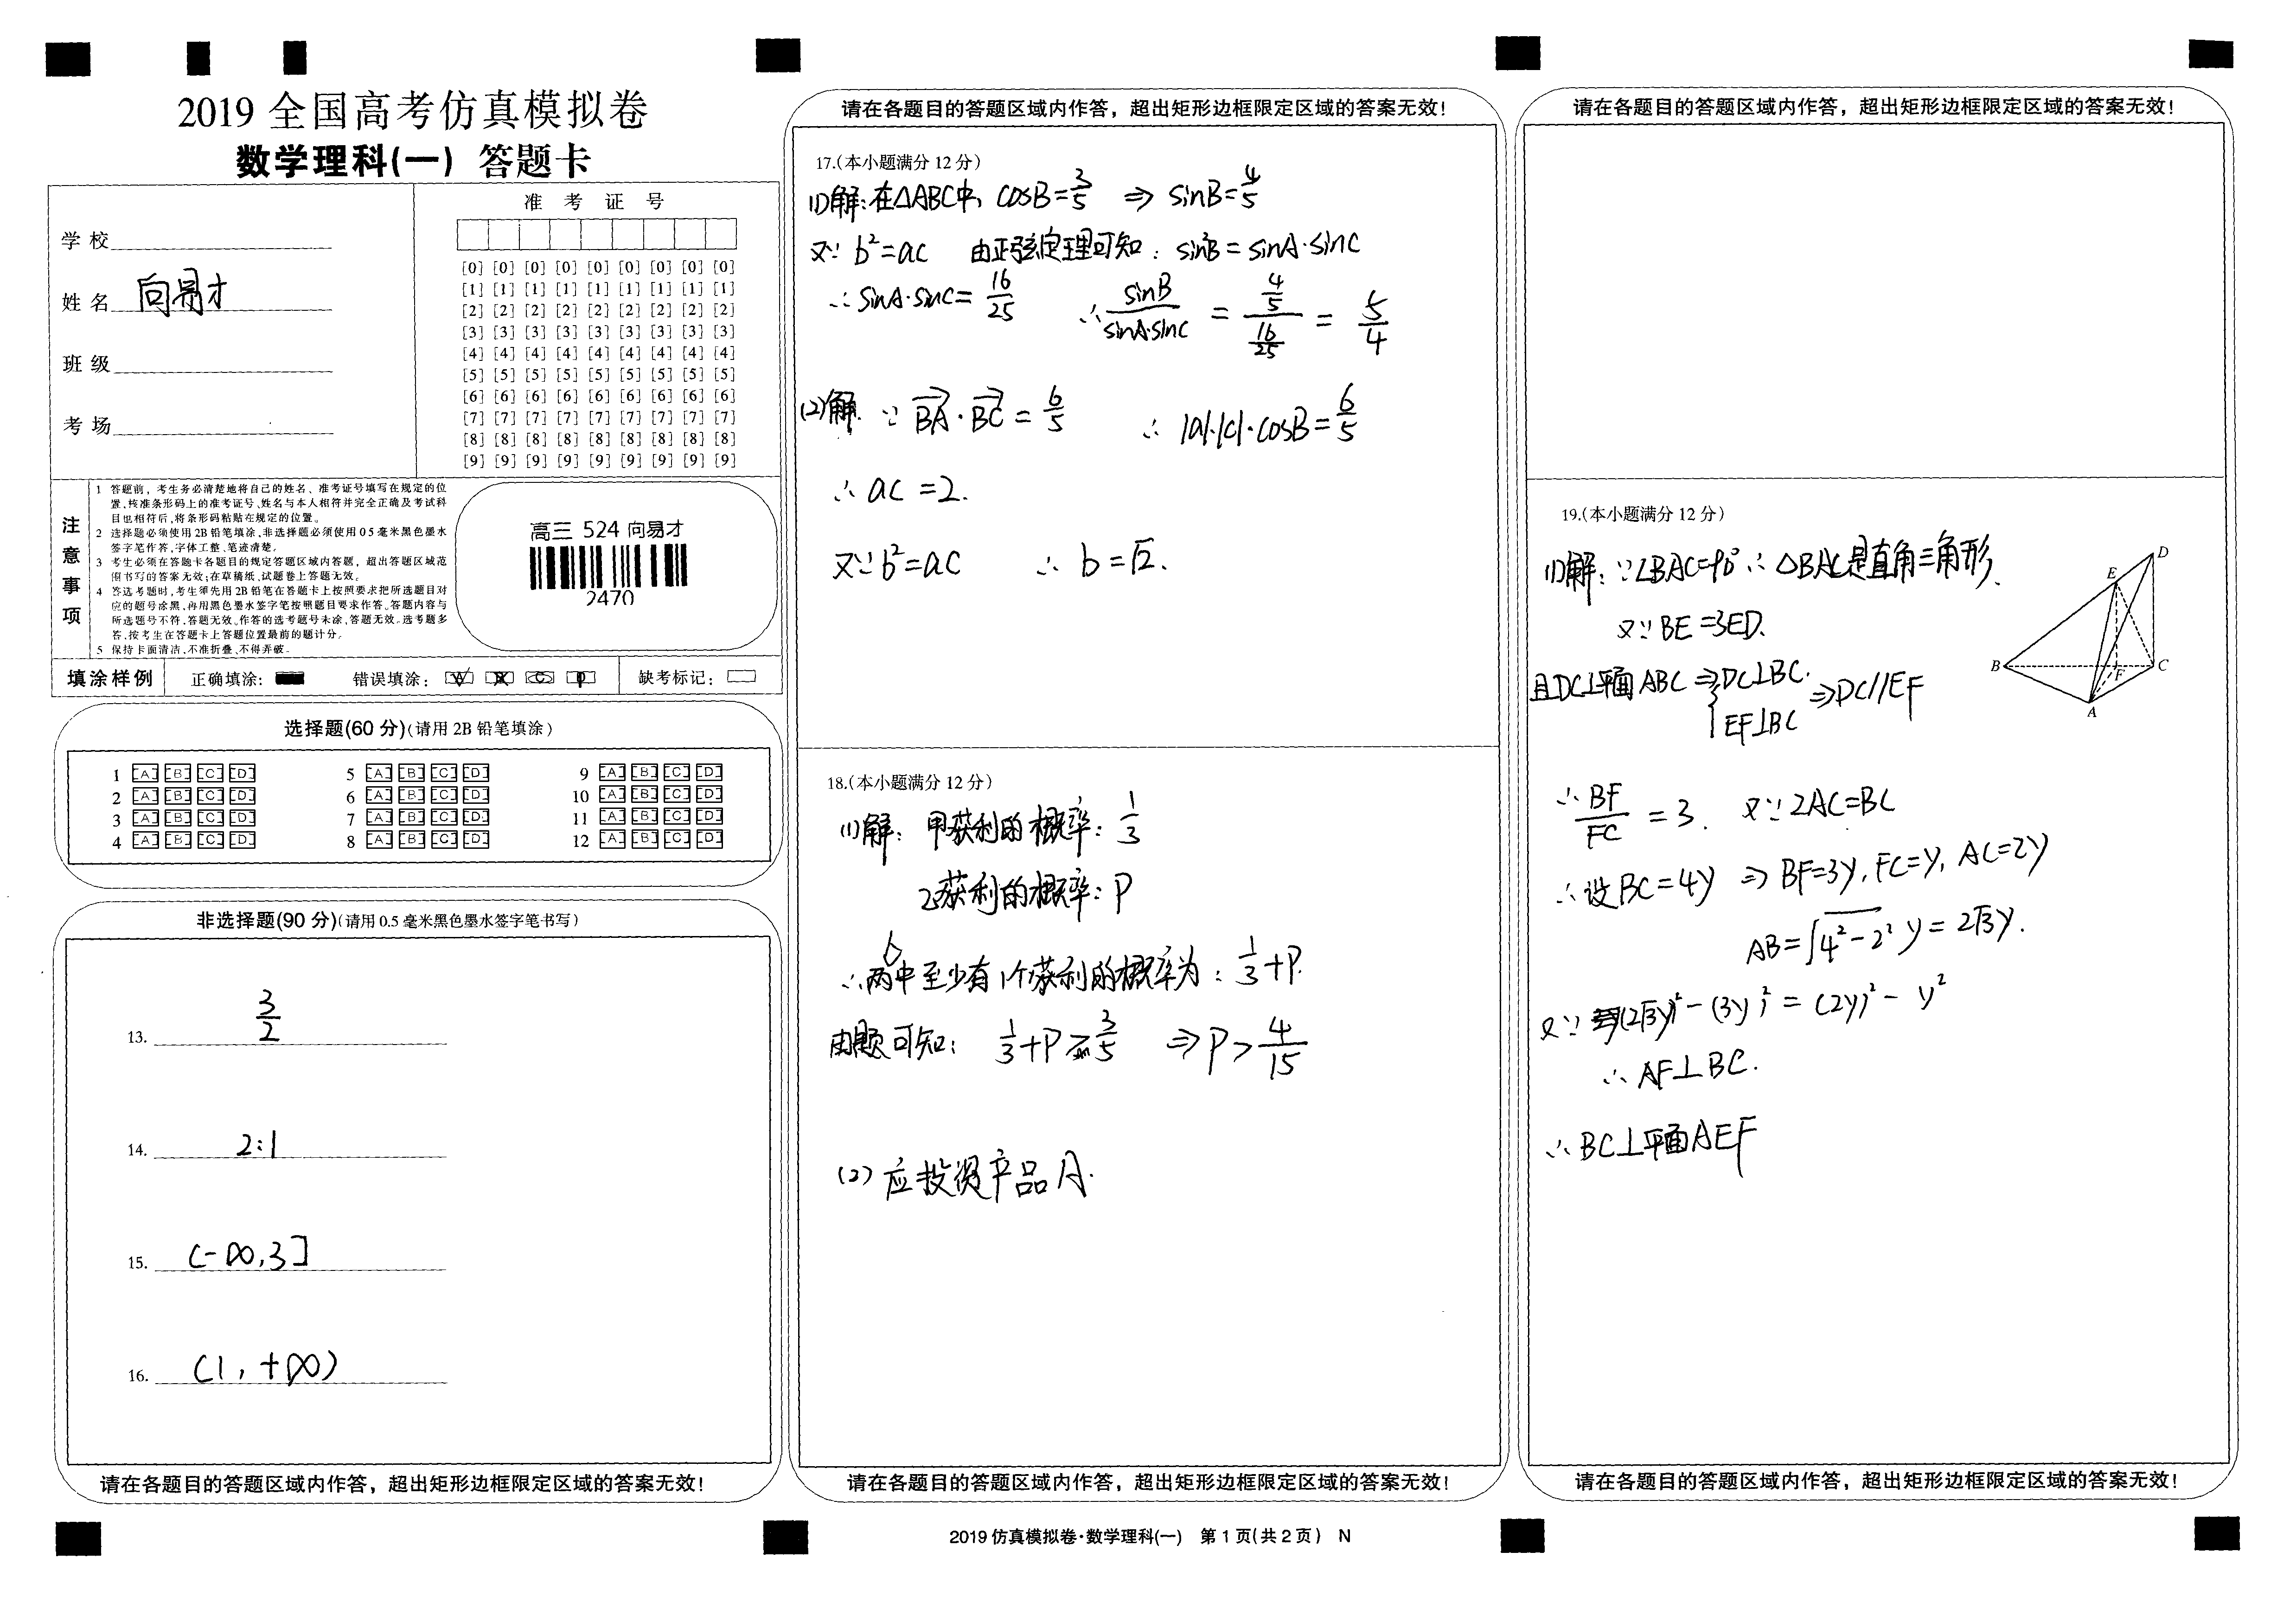 2019 全国高考仿真模拟卷
数学理科(一) 答题卡
学校
姓名 向易才
班级
考场
准 考 证 号
[0] [0] [0] [0] [0] [0] [0] [0] [0]
[1] [1] [1] [1] [1] [1] [1] [1] [1]
[2] [2] [2] [2] [2] [2] [2] [2] [2]
[3] [3] [3] [3] [3] [3] [3] [3] [3]
[4] [4] [4] [4] [4] [4] [4] [4] [4]
[5] [5] [5] [5] [5] [5] [5] [5] [5]
[6] [6] [6] [6] [6] [6] [6] [6] [6]
[7] [7] [7] [7] [7] [7] [7] [7] [7]
[8] [8] [8] [8] [8] [8] [8] [8] [8]
[9] [9] [9] [9] [9] [9] [9] [9] [9]
注意事项
1 答题前，考生务必清楚地将自己的姓名、准考证号填写在规定的位
置,核准条形码上的准考证号、姓名与本人相符并完全正确及考试科
目也相符后,将条形码粘贴在规定的位置。
2 选择题必须使用2B铅笔填涂,非选择题必须使用0 5毫米黑色墨水
签字笔作答,字体工整、笔迹清楚。
3 考生必须在答题卡各题目的规定答题区域内答题，超出答题区域范
围书写的答案无效;在草稿纸、试题卷上答题无效。
4 答选考题时,考生须先用2B铅笔在答题卡上按照要求把所选题目对
应的题号涂黑,再用黑色墨水签字笔按照题目要求作答。答题内容与
所选题号不符,答题无效。作答的选考题号未涂,答题无效。选考题多
答,按考生在答题卡上答题位置最前的题计分。
5 保持卡面清洁,不准折叠、不得弄破。
高三 524 向易才
2470
填涂样例 正确填涂: 错误填涂: 缺考标记:
选择题(60 分)(请用 2B 铅笔填涂)
1 [A] [B] [C] [D] 5 [A] [B] [C] [D] 9 [A] [B] [C] [D]
2 [A] [B] [C] [D] 6 [A] [B] [C] [D] 10 [A] [B] [C] [D]
3 [A] [B] [C] [D] 7 [A] [B] [C] [D] 11 [A] [B] [C] [D]
4 [A] [B] [C] [D] 8 [A] [B] [C] [D] 12 [A] [B] [C] [D]
非选择题(90 分)(请用 0.5 毫米黑色墨水签字笔书写)
13. 3/2
14. 2:1
15. (-∞,3]
16. (1,+∞)
请在各题目的答题区域内作答，超出矩形边框限定区域的答案无效!
请在各题目的答题区域内作答，超出矩形边框限定区域的答案无效!
17.(本小题满分 12 分)
(1)解:在△ABC中, cosB=3/5 ⇒ sinB=4/5
又∵ b²=ac 由正弦定理可知: sin²B=sinA·sinC
∴sinA·sinC=16/25 ∴ sinB/(sinA·sinC) = (4/5)/(16/25) = 5/4
(2)解. ∵ BA·BC=6/5 ∴ |a|·|c|·cosB=6/5
∴ ac=2.
又∵b²=ac ∴ b=√2.
18.(本小题满分 12 分)
(1)解: 甲获利的概率: 1/3
乙获利的概率: P
∴两中至少有1个获利的概率为: 1/3+P.
由题可知: 1/3+P≥3/5 ⇒P>4/15
(2) 应投资产品A.
请在各题目的答题区域内作答，超出矩形边框限定区域的答案无效!
2019 仿真模拟卷·数学理科(一) 第 1 页(共 2 页) N
请在各题目的答题区域内作答，超出矩形边框限定区域的答案无效!
19.(本小题满分 12 分)
(1)解: ∵∠BAC=90° ∴ △BAC是直角三角形.
又∵BE=3ED.
且DC⊥平面ABC ⇒ { DC⊥BC.
EF⊥BC ⇒DC//EF
D
E
B
C
F
A
∴ BF/FC = 3. 又∵ 2AC=BC
∴设BC=4y ⇒ BF=3y, FC=y, AC=2y
AB=√(4²-2²) y=2√3y.
又∵ (2√3y)²-(3y)²=(2y)²-y²
∴ AF⊥BC.
∴ BC⊥平面AEF
请在各题目的答题区域内作答，超出矩形边框限定区域的答案无效!